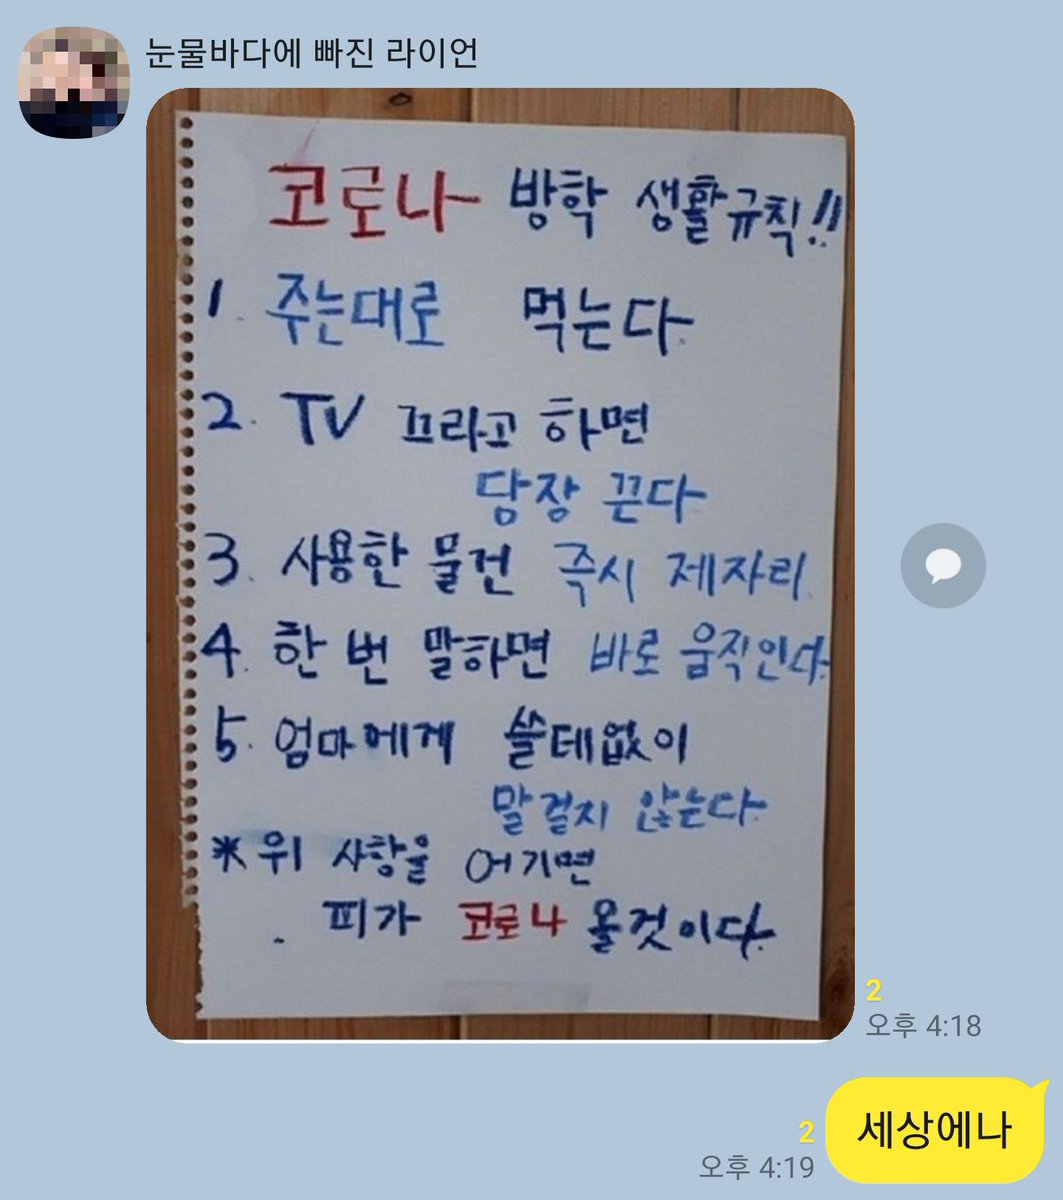 눈물바다에 빠진 라이언
코로나 방학 생활규칙!!
1. 주는대로 먹는다.
2. TV 끄라고 하면
당장 끈다
3. 사용한 물건 즉시 제자리.
4. 한 번 말하면 바로 움직인다.
5. 엄마에게 쓸데없이
말걸지 않는다.
* 위 사항을 어기면
피가 코로나 올것이다.
2
오후 4:18
세상에나
2
오후 4:19